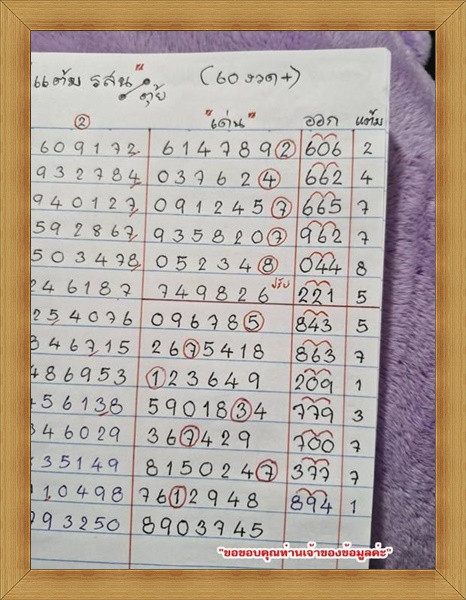 "แต้ม รสน" ตุ้ย (60 งวด+)
② "เด่น" ออก แต้ม
609172 6147892 606 2
932784 037624 662 4
940127 0912457 665 7
592867 9358207 962 7
503478 052348 044 8
246187 749826 ปรับ 221 5
254076 096785 843 5
346715 2675418 863 7
486953 123649 209 1
456138 5901834 779 3
346029 367429 700 7
235149 8150247 377 7
10498 7612948 894 1
793250 8903745
"ขอขอบคุณท่านเจ้าของข้อมูลค่ะ"